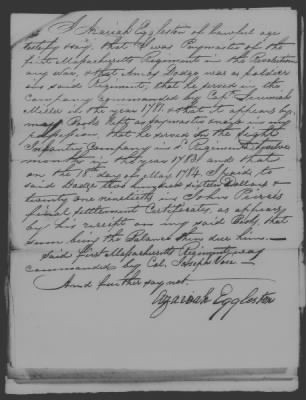 I Azariah Eggleston of lawful age
testify & say, that I was Paymaster of the
first Massachusetts Regiment in the Revolution
ary War, & that Amos Dodge was a soldier
in said Regiment, that he served in the
Company commanded by Capt. Jeremiah
Miller in the year 1781 & that it appears by
my Books kept as paymaster now in my
possession, that he served in the light
Infantry Company in sd Regiment twelve
months in the year 1783 and that
on the 18th day of May 1784 I paid to
said Dodge two hundred sixteen Dollars &
twenty one ninetieths in John Pierce's
final settlement Certificates, as appears
by his receipt on my said Book, that
sum being the balance then due him —
Said first Massachusetts Regiment was
commanded by Col. Joseph Vose —
And further say not.
Azariah Eggleston